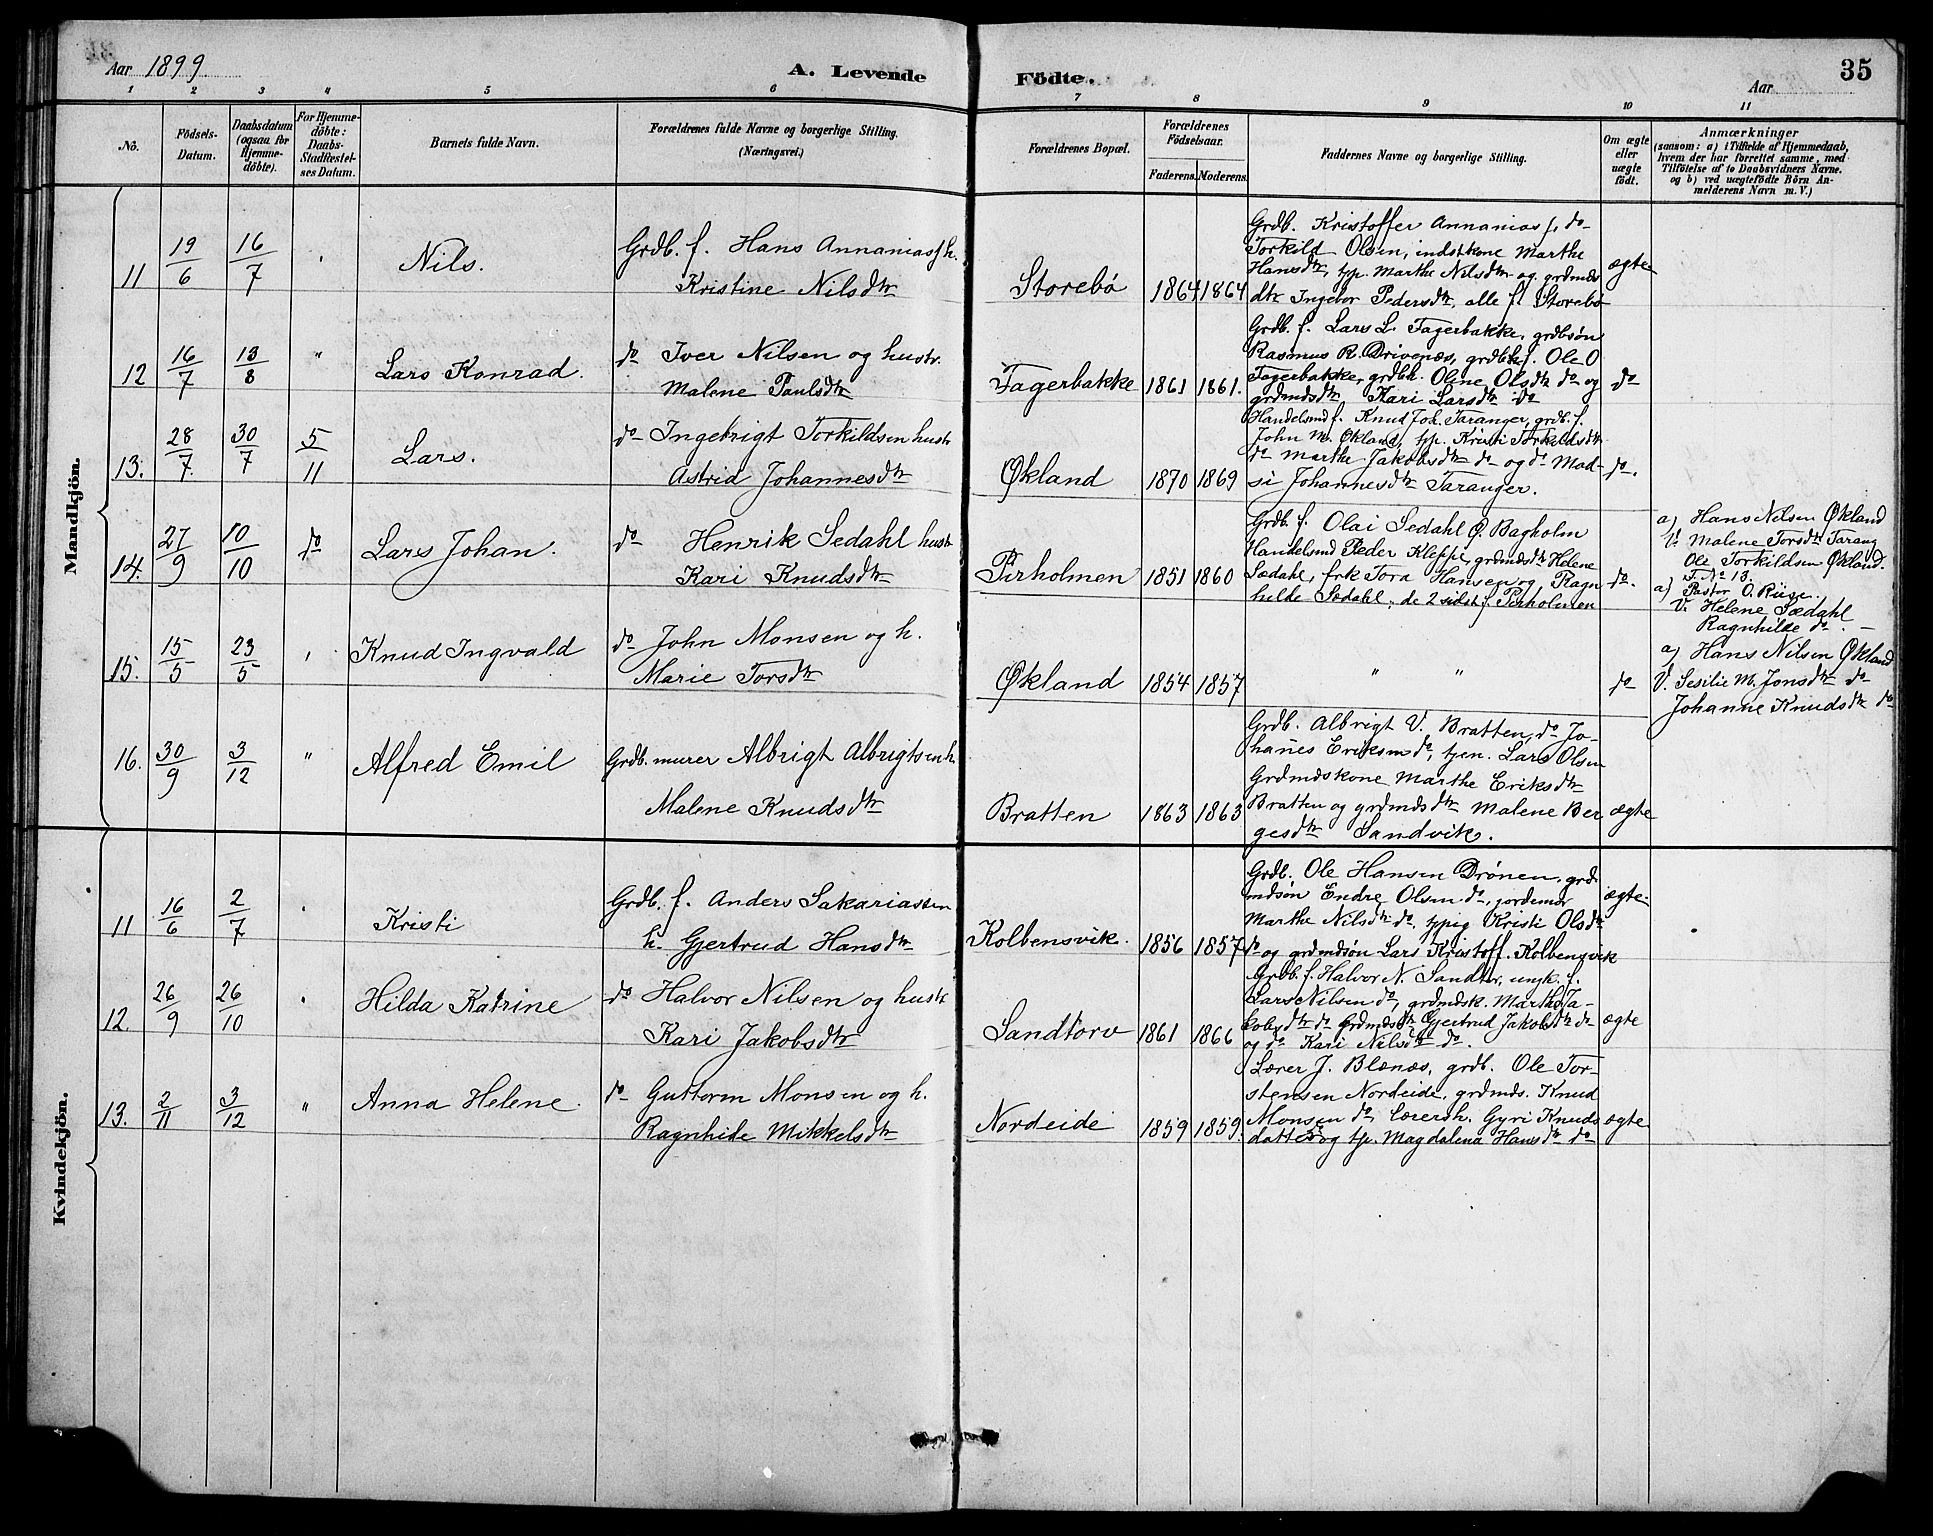 Aar 1899.
A. Levende
Födte.
Aar
35
1
2
3
4
5
6
7
8
9
10
11
No.
Födsels-
Datum.
Daabsdatum
(ogsaa for
Hjemme-
döbte).
For Hjemme-
döbte:
Daabs-
Stadfæstel-
ses Datum.
Barnets fulde Navn.
Forældrenes fulde Navne og borgerlige Stilling.
(Næringsvei.)
Forældrenes Bopæl.
Forældrenes
Födselsaar.
Faderens.
Moderens.
Faddernes Navne og borgerlige Stilling.
Om ægte
eller
uægte
födt.
Anmærkninger
(saasom: a) i Tilfælde af Hjemmedaab,
hvem der har forrettet samme, med
Tilföielse af to Daabsvidners Navne.
og b) ved uægtefödte Börn An-
melderens Navn m. V.)
Mandkjön.
11 19/6 16/7 Nils.
Grdb. f. Hans Annanias f h.
Kristine Nilsdtr
Storebø 1864 1864
Grdb. Kristoffer Annanias f, do
Torkild Olsen, indstkone Marthe
Hansdtr, tp. Marthe Nilsdtr og grdmds
dtr Ingebor Pedersdtr, alle f. Storebø
ægte
12 16/7 13/8 " Lars Konrad.
do Iver Nilsen og hustr.
Malene Paulsdtr
Fagerbakke 1861 1861.
Grdb. f. Lars L. Fagerbakke, grdbsøn
Rasmus R. Drivenæs, grdbk f. Ole O
Fagerbakke, grdbk. Oline Olsdtr do og
grdmdsdtr Kari Larsdtr do
do
13. 28/7. 30/7 5/11 Lars.
do Ingebrigt Torkildsen hustr
Astrid Johannesdtr
Økland 1870 1869
Handelsmd f. Knud Joh. Taranger, grdb. f.
John M. Økland, tp. Kristi Torkildsdtr
do Marthe Jakobsdtr do og do Mad-
si Johannesdtr Taranger.
do.
14. 27/9 10/10 do Lars Johan.
do Henrik Sedahl hustr
Kari Knudsdtr
Pirholmen 1851 1860
Grdb. f. Olai Sedahl Ø. Bagholm
Handelsmd Peder Kleppe, grdmdsdtr Helene
Sædahl, frk Tora Hansen og Ragn
hilde Sædahl, de 2 sidst f. Pirholmen
do.
a) Hans Nilsen Økland
V. Malene Torsdtr Tarang
Ole Torkildsen Økland.
T. No 13.
a) Pastor O. Riise.
V. Helene Sædahl
Ragnhilde do. —
15. 15/5 23/5 Knud Ingvald
do John Monsen og h.
Marie Torsdtr
Økland 1854 1857
" "
do
a) Hans Nilsen Økland
V. Sesilie M. Jonsdtr do
Johanne Knudsdtr do
16. 30/9 3/12 " Alfred Emil
Grdb. murer Albrigt Albrigtsen h.
Malene Knudsdtr
Bratten 1863 1863
Grdb. Albrigt V. Bratten, do Jo-
hanes Eriksen do, tjen. Lars Olsen
Grdmdskone Marthe Eriksdtr
Bratten og grdmdsdtr Malene Ber
gesdtr Sandvik.
ægte
Kvindekjön.
11 16/6 2/7 Kristi
Grdb. f. Anders Sakariassen
h. Gjertrud Hansdtr
Kolbensvik. 1856 1857
Grdb. Ole Hansen Drönen, grd-
mdsøn Endre Olsen do, jordemor
Marthe Nilsdtr do, tpig Kristi Olsdtr
do og grdmdsøn Lars Kristoff. Kolbensvik
ægte.
12. 26/9 26/10 Hilda Katrine
do Halvor Nilsen og hustr
Kari Jakobsdtr
Sandtorv 1861 1866
Grdb. f. Halvor N. Sandtor, ungk. f.
Lars Nilsen do, grdmdsk. Marthe Ja-
kobsdtr do Grdmdsdtr Gjertrud Jakobsdtr do
og do Kari Nilsdtr do.
ægte
13. 2/11 3/12 " Anna Helene.
do Guttorm Monsen og h.
Ragnhilde Mikkelsdtr
Nordeide 1859 1859.
Lærer J. Blænæs, grdb. Ole Tor-
stensen Nordeide, grdmds. Knud
Monsen do, lærersh. Gyri Knuds
datter og tp. Magdalena Hansdtr do
ægte